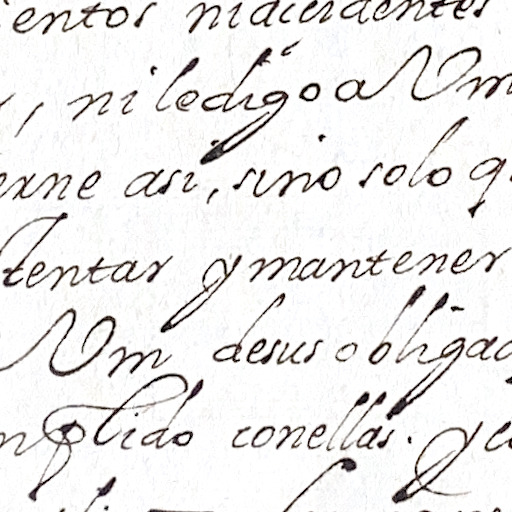 ientos nidicidentes
, ni le digo a Vm
erne asi, sino solo q
tentar y mantener
Vm de sus obligac
mplido con ellas. y co